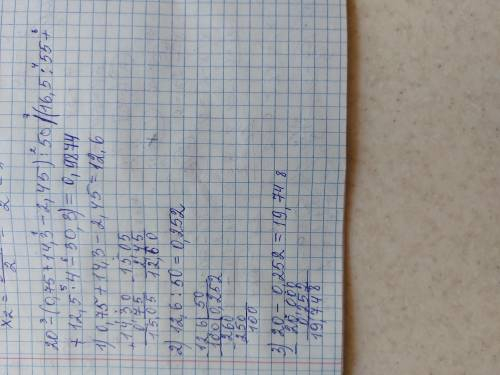 x₂ = — = —
2 2
20 - (0,75+14,3-2,45) : 50 / (16,5 : 55 +
+ 12,5 · 4 - 30,3) = 0,9874
1) 0,75 + 14,3 - 2,45 = 12,6
+ 14,30 - 15,05
0,75 2,45
15,05 12,60
2) 12,6 : 50 = 0,252
12,6 | 50
100 | 0,252
260
- 250
100
3) 20 - 0,252 = 19,748
- 20,000
0,252
19,748